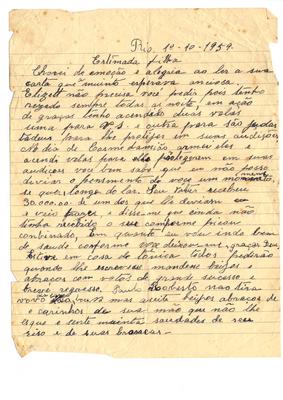 Rio, 10-10-1959.
Estimada filha
Chorei de emoção e alegria ao ler a sua
carta que muito esperava anciosa.
Elizeth não precisa você pedir pois tenho
rezado sempre todas as noite, em ação
de graças tenho acendido duas velas
uma para N.S. e outra para São Judas
tadeus para lhe proteger em suas audições
No dia de Cosme Damião arrumei eles e
acendi velas para elles protegerem em suas
audições vou bem sabe que eu não posso
desviar o pensamento de você um momento
se quer, longe do lar. Seu Valter recebeu
30.000.00 de um dos que lhe deviam
e veio e disse-me que ainda não
tinha recebido o seu conforme ficou
combinado, em quanto eu vou indo bem
de saude conforme você deixou-me, graças Deus
Estive em casa do todos pedirão
quando lhe mandasse beijos e
abraços com votos de grande sucesso e
breve regresso, Paulo Roberto não tira
você da mas aceite beijos abraços de
e carinhos de sua mãe que não lhe
esque e sente muinta saudades de seu
riso e de suas